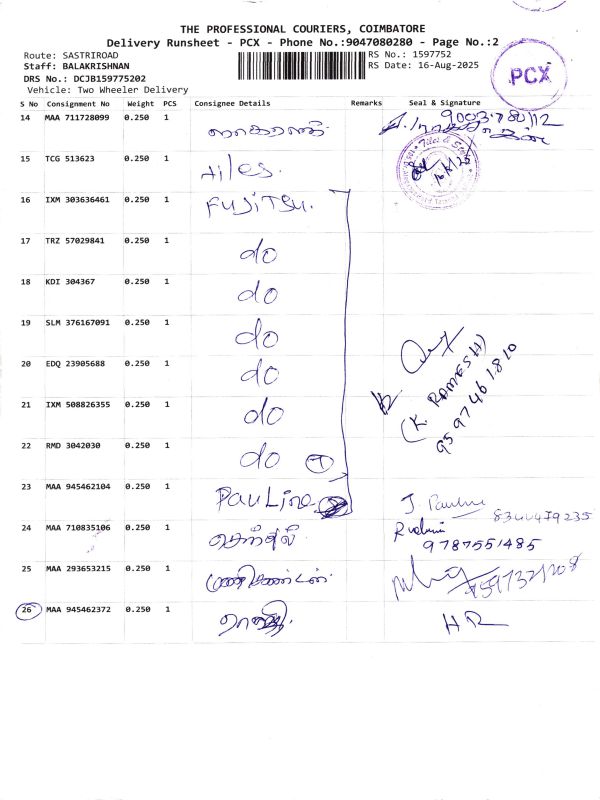 THE PROFESSIONAL COURIERS, COIMBATORE
Delivery Runsheet - PCX - Phone No.:9047080280 - Page No.:2
Route: SASTRIROAD
RS No.: 1597752
Staff: BALAKRISHNAN
RS Date: 16-Aug-2025
DRS No.: DCJB159775202
Vehicle: Two Wheeler Delivery
PCX
S No Consignment No Weight PCS Consignee Details Remarks Seal & Signature
14 MAA 711728099 0.250 1
15 TCG 513623 0.250 1
16 IXM 303636461 0.250 1 FUJITSU.
17 TRZ 57029841 0.250 1 do
18 KDI 304367 0.250 1 do
19 SLM 376167091 0.250 1 do
20 EDQ 23905688 0.250 1 do
21 IXM 508826355 0.250 1 do
22 RMD 3042030 0.250 1 do 7
(K RAMESH)
9597461810
23 MAA 945462104 0.250 1 Pauline J. Pauline
24 MAA 710835106 0.250 1 செந்தில்
9787551485
25 MAA 293653215 0.250 1 மணிகண்டன்.
26 MAA 945462372 0.250 1 HR